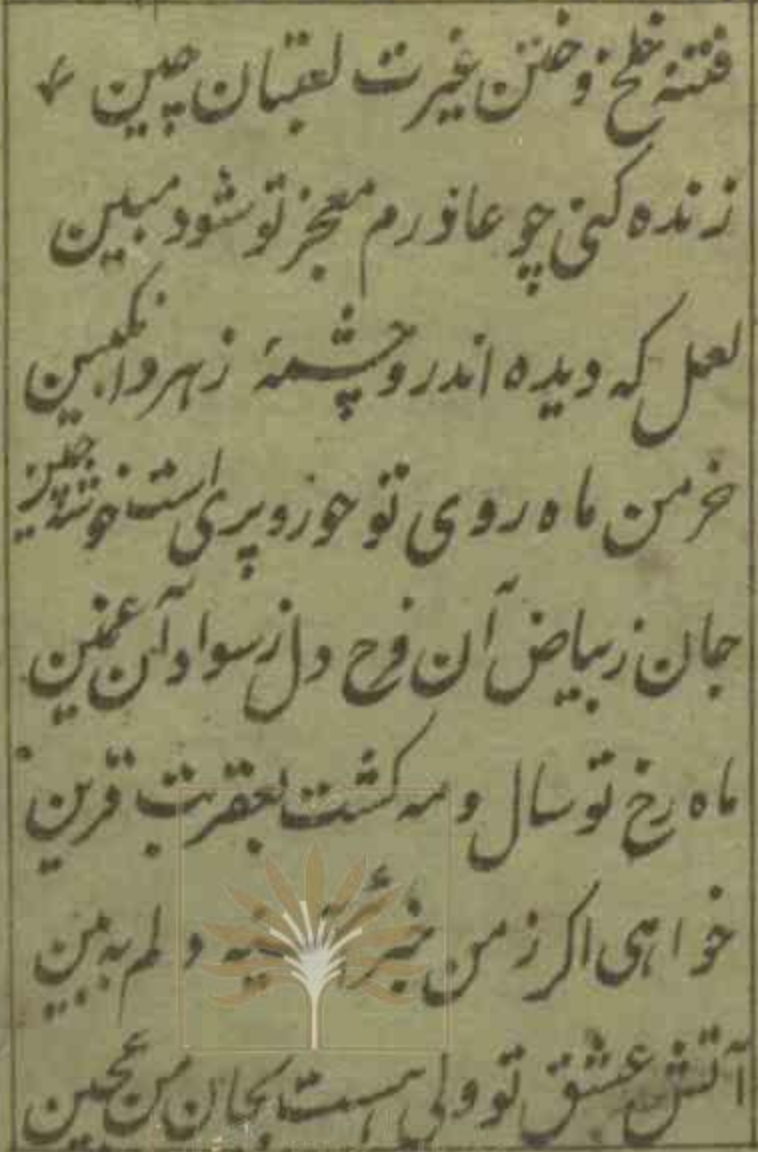 فتنهٔ خلخ و ختن غیرت لعبتان چین
زنده کنی چو عاذرم معجز تو شود مبین
لعل که دیده اندرو چشمهٔ زهر و انکبین
خرمن ماه روی تو حور و پری است خوشه چین
جان ز بیاض آن فرح دل ز سواد آن غمین
ماه رخ تو سال و مه کشت بعقرب قرین
خواهی اکر ز من خبر آینه دلم به بین
آتش عشق تو ولی هست بجان من عجین